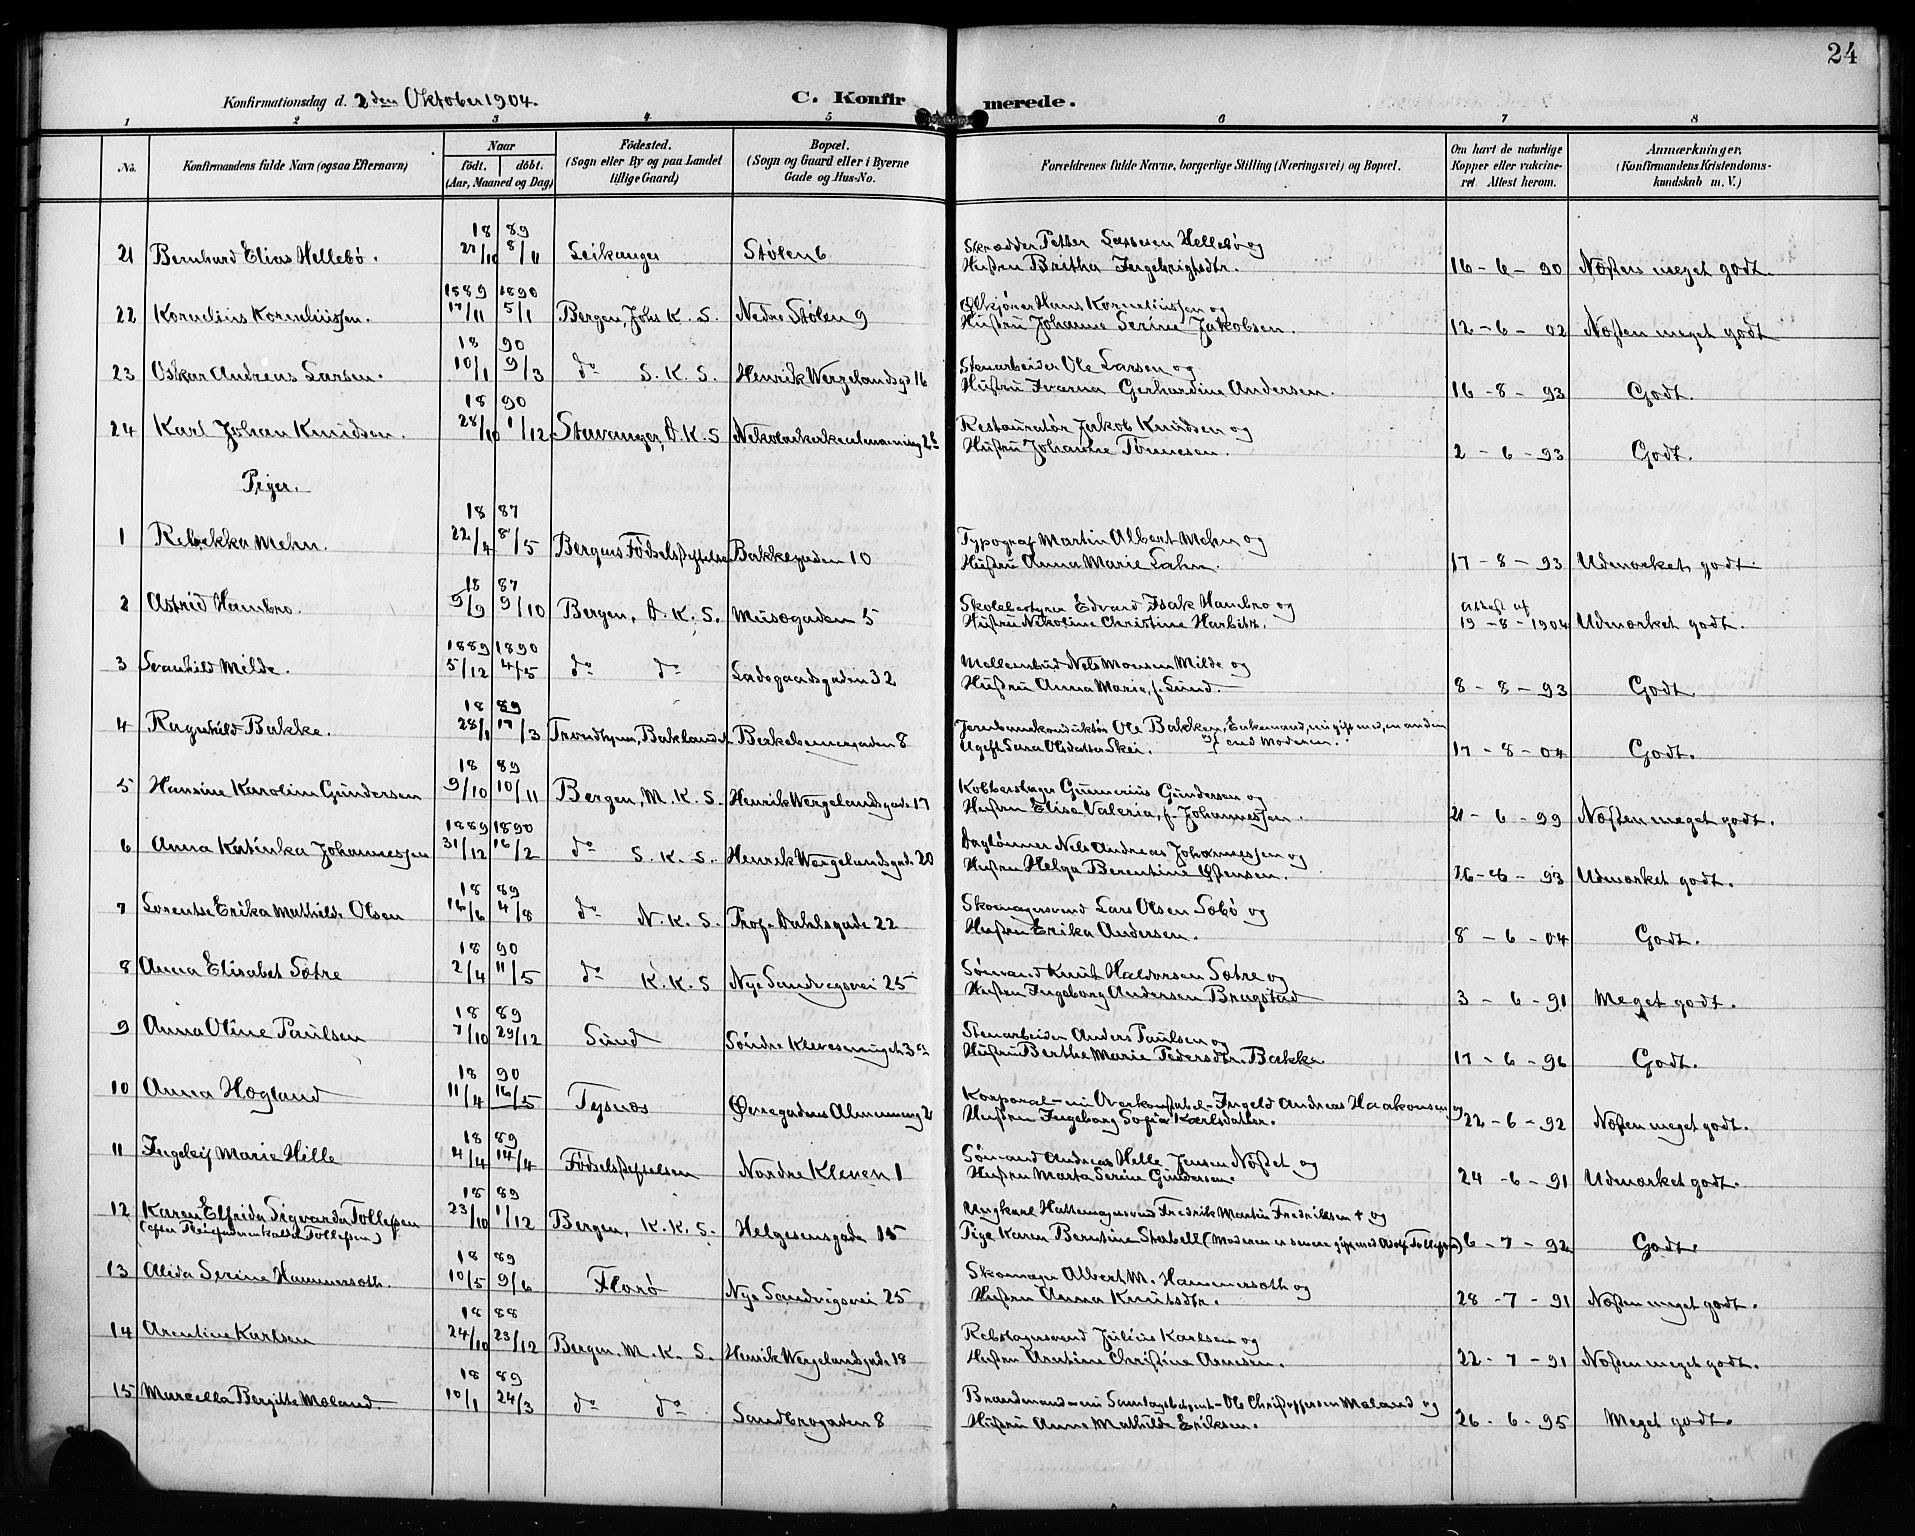 24
Konfirmationsdag d. 2den Oktober 1904.
C. Konfirmerede.
1 2 3 4 5 6 7 8
No. Konfirmandens fulde Navn (ogsaa Efternavn) Naar født. døbt. (Aar, Maaned og Dag) Födested. (Sogn eller By og paa Landet tillige Gaard) Bopæl. (Sogn og Gaard eller i Byerne Gade og Hus-No. Forældrenes fulde Navne, borgerlige Stilling (Næringsvei) og Bopæl. Om havt de naturlige Kopper eller vakcineret Attest herom. Anmærkninger, (Konfirmandens Kristendomskundskab m. V.)
18 89
21 Bernhard Elias Hellebø. 27/10 8/11 Leikanger Stølen 6 Skrædder Petter Hellebø og
Hustru Britha Ingebrigtsdtr. 16-6-90 Næsten meget godt.
1889 1890
22 Kornelius Korneliussen. 17/11 5/1 Bergen, Johs K. S. Nedre Stølen 9 Ølkjører Hans Korneliussen og
Hustru Johanne Serine Jakobsen. 12-6-02 Næsten meget godt
18 90
23 Oskar Andreas Larsen. 10/1 9/3 do S. K. S. Henrik Wergelandsgd 16 Stenarbeider Ole Larsen og
Hustru Ivarna Gerhardine Andersen. 16-8-93 Godt.
18 90
24 Karl Johan Knudsen. 28/10 1/12 Stavanger, D. K. S Nikolaikirkealmenning Restauratør Jakob Knudsen og
Hustru Johanne Tønnesen. 2-6-93 Godt.
Piger.
18 87
1 Rebekka Mehn. 22/4 8/5 Bergens Fødselsstiftelse Bakkegaden 10 Typograf Martin Albert Mehn og
Hustru Anna Marie Lahn. 17-8-93 Udmærket godt.
18 87
2 Astrid Hambro. 5/9 9/10 Bergen, D. K. S. Musægaden 5 Skolebestyrer Edvard Isak Hambro og
Hustru Nikoline Christine Harbitz. Attest af 19-8-1904 Udmærket godt.
1889 1890
3 Svanhild Milde. 5/12 4/5 do do Ladegaardsgaden 32 Mellembud Nels Monsen Milde og
Hustru Anna Marie, f. Lund. 8-8-93 Godt
18 89
4 Ragnhild Bakke. 28/1 17/3 Trondhjem, Baklandet Birkebeinergaden 8 Jernbanekonduktør Ole Bakken, Enkemand, nu gift med en anden
Ugift Sara Olsdatter Skei. end Moderen. 17-8-04 Godt.
18 89
5 Hansine Karoline Gundersen 9/10 10/11 Bergen, M. K. S. Henrik Wergelandsgade 17 Kobberslager Gunnerius Gundersen og
Hustru Elise Valeria, f. Johannessen. 21-6-99 Næsten meget godt.
1889 1890
6 Anna Katinka Johannessen 31/12 16/2 do S. K. S. Henrik Wergelandsgade 20 Daglønner Nels Andreas Johannessen og
Hustru Helga Berentine Østensen. 16-8-93 Udmærket godt.
18 89
7 Lorentse Erika Mathilde Olsen 16/6 4/8 do N. K. S. Prof. Dahlsgade 22 Skomagersvend Lars Olsen Sæbø og
Hustru Erika Andersen. 8-6-04 Godt.
18 90
8 Anna Elisabet Sætre 2/4 11/5 do K. K. S Nye Sandvigsvei 25 Sømand Knut Haldorsen Sætre og
Hustru Ingeborg Andersen Bragstad 3-6-91 Meget godt.
18 89
9 Anna Oline Paulsen 7/10 29/12 Sund Søndre Klevesmuget 3 a Stenarbeider Anders Paulsen og
Hustru Berthe Marie Pedersdtr. Bakke 17-6-96 Godt.
18 90
10 Anna Hægland 11/4 16/5 Tysnæs Øvregadens Almenning 2 Korporal - nu Overkonstabel - Ingeld Andreas Haakonsen og
Hustru Ingeborg Sofia Karlsdatter. 22-6-92 Næsten meget godt.
18 89
11 Ingeleif Marie Hille 4/4 14/4 Fødselsstiftelsen Nordre Kleven 1 Sømand Andreas Hille Jensen Nøstet og
Hustru Marta Serine Gundersen. 24-6-91 Udmærket godt.
18 89
12 Karen Elfrida Sigvarda Tollefsen 23/10 1/12 Bergen, K. K. S. Helgesensgade 15 Ungkarl Hattemagersvend Fredrik Martin Fredriksen + og
(efter Pleiefaderen kaldt Tollefsen) Pige Karen Berntine Stabell (Moderen er senere gift med Adolf Tollefsen) 6-7-92 Godt.
18 89
13 Alida Serine Hammersoth. 10/5 9/6 Florø Nye Sandvigsvei 25 Skomager Albert M. Hammersoth og
Hustru Anna Knutsdtr. 28-7-91 Næsten meget godt.
18 88
14 Arentine Karlsen 24/10 23/12 Bergen, M. K. S. Henrik Wergelandsgade 18 Rebslagersvend Julius Karlsen og
Hustru Arntine Christine Arnesen. 22-7-91 Næsten meget godt.
18 89
15 Marcella Bergitte Moland. 10/1 24/3 do do Sandbrogaden 8 Brandmand - nu - Ole Christoffersen Moland og
Hustru Anne Mathilde Eriksen. 26-6-95 Meget godt.